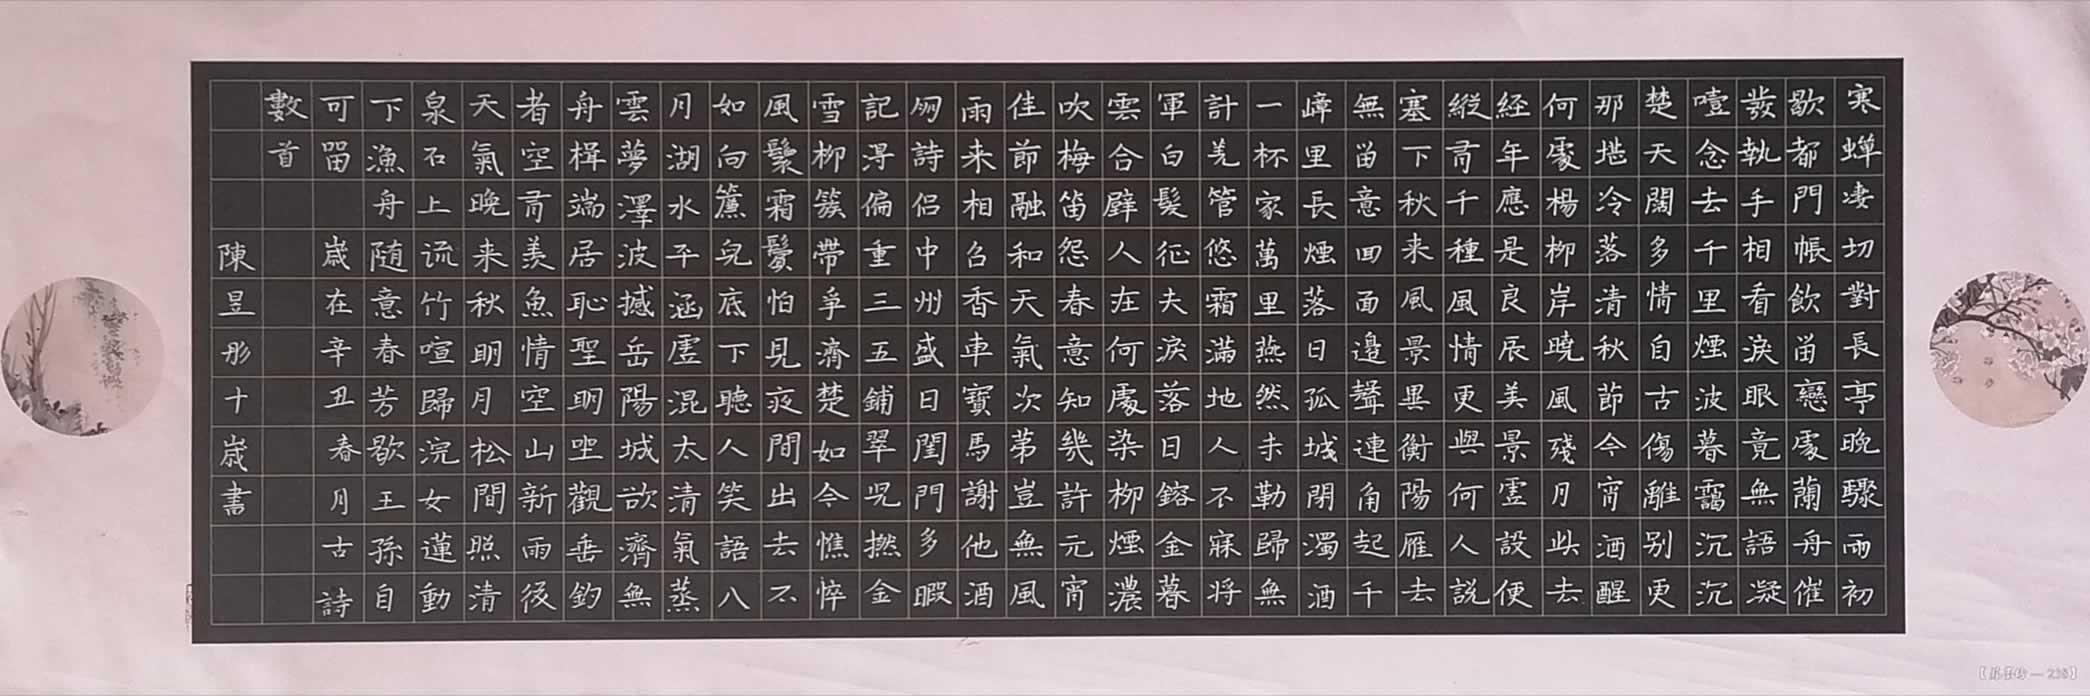 寒蟬凄切對長亭晚驟雨初
歇都門帳飲留戀處蘭舟催
發執手相看淚眼竟無語凝
噎念去千里煙波暮靄沉沉
楚天闊多情自古傷離别更
那堪冷落清秋節今宵酒醒
何處楊柳岸曉風殘月此去
經年應是良辰美景虛設便
縱有千種風情更與何人説
塞下秋来風景異衡陽雁去
無留意四面邊聲連角起千
嶂里長煙落日孤城閉濁酒
一杯家萬里燕然未勒歸無
計羌管悠霜滿地人不寐将
軍白髮征夫淚落日鎔金暮
雲合璧人在何處染柳煙濃
吹梅笛怨春意知幾許元宵
佳節融和天氣次第豈無風
雨来相召香車寶馬謝他酒
朋詩侣中州盛日閨門多暇
記淂偏重三五鋪翠児撚金
雪柳簇帶爭濟楚如今憔悴
風鬟霜鬢怕見夜間出去不
如向簾兒底下聽人笑語八
月湖水平涵虛混太清氣蒸
雲夢澤波撼岳陽城欲濟無
舟楫端居恥聖明坐觀垂釣
者空有羨魚情空山新雨後
天氣晚来秋明月松間照清
泉石上流竹喧歸浣女蓮動
下漁舟随意春芳歇王孫自
可留 歲在辛丑春月古詩
數首
陳昱彤十歲書